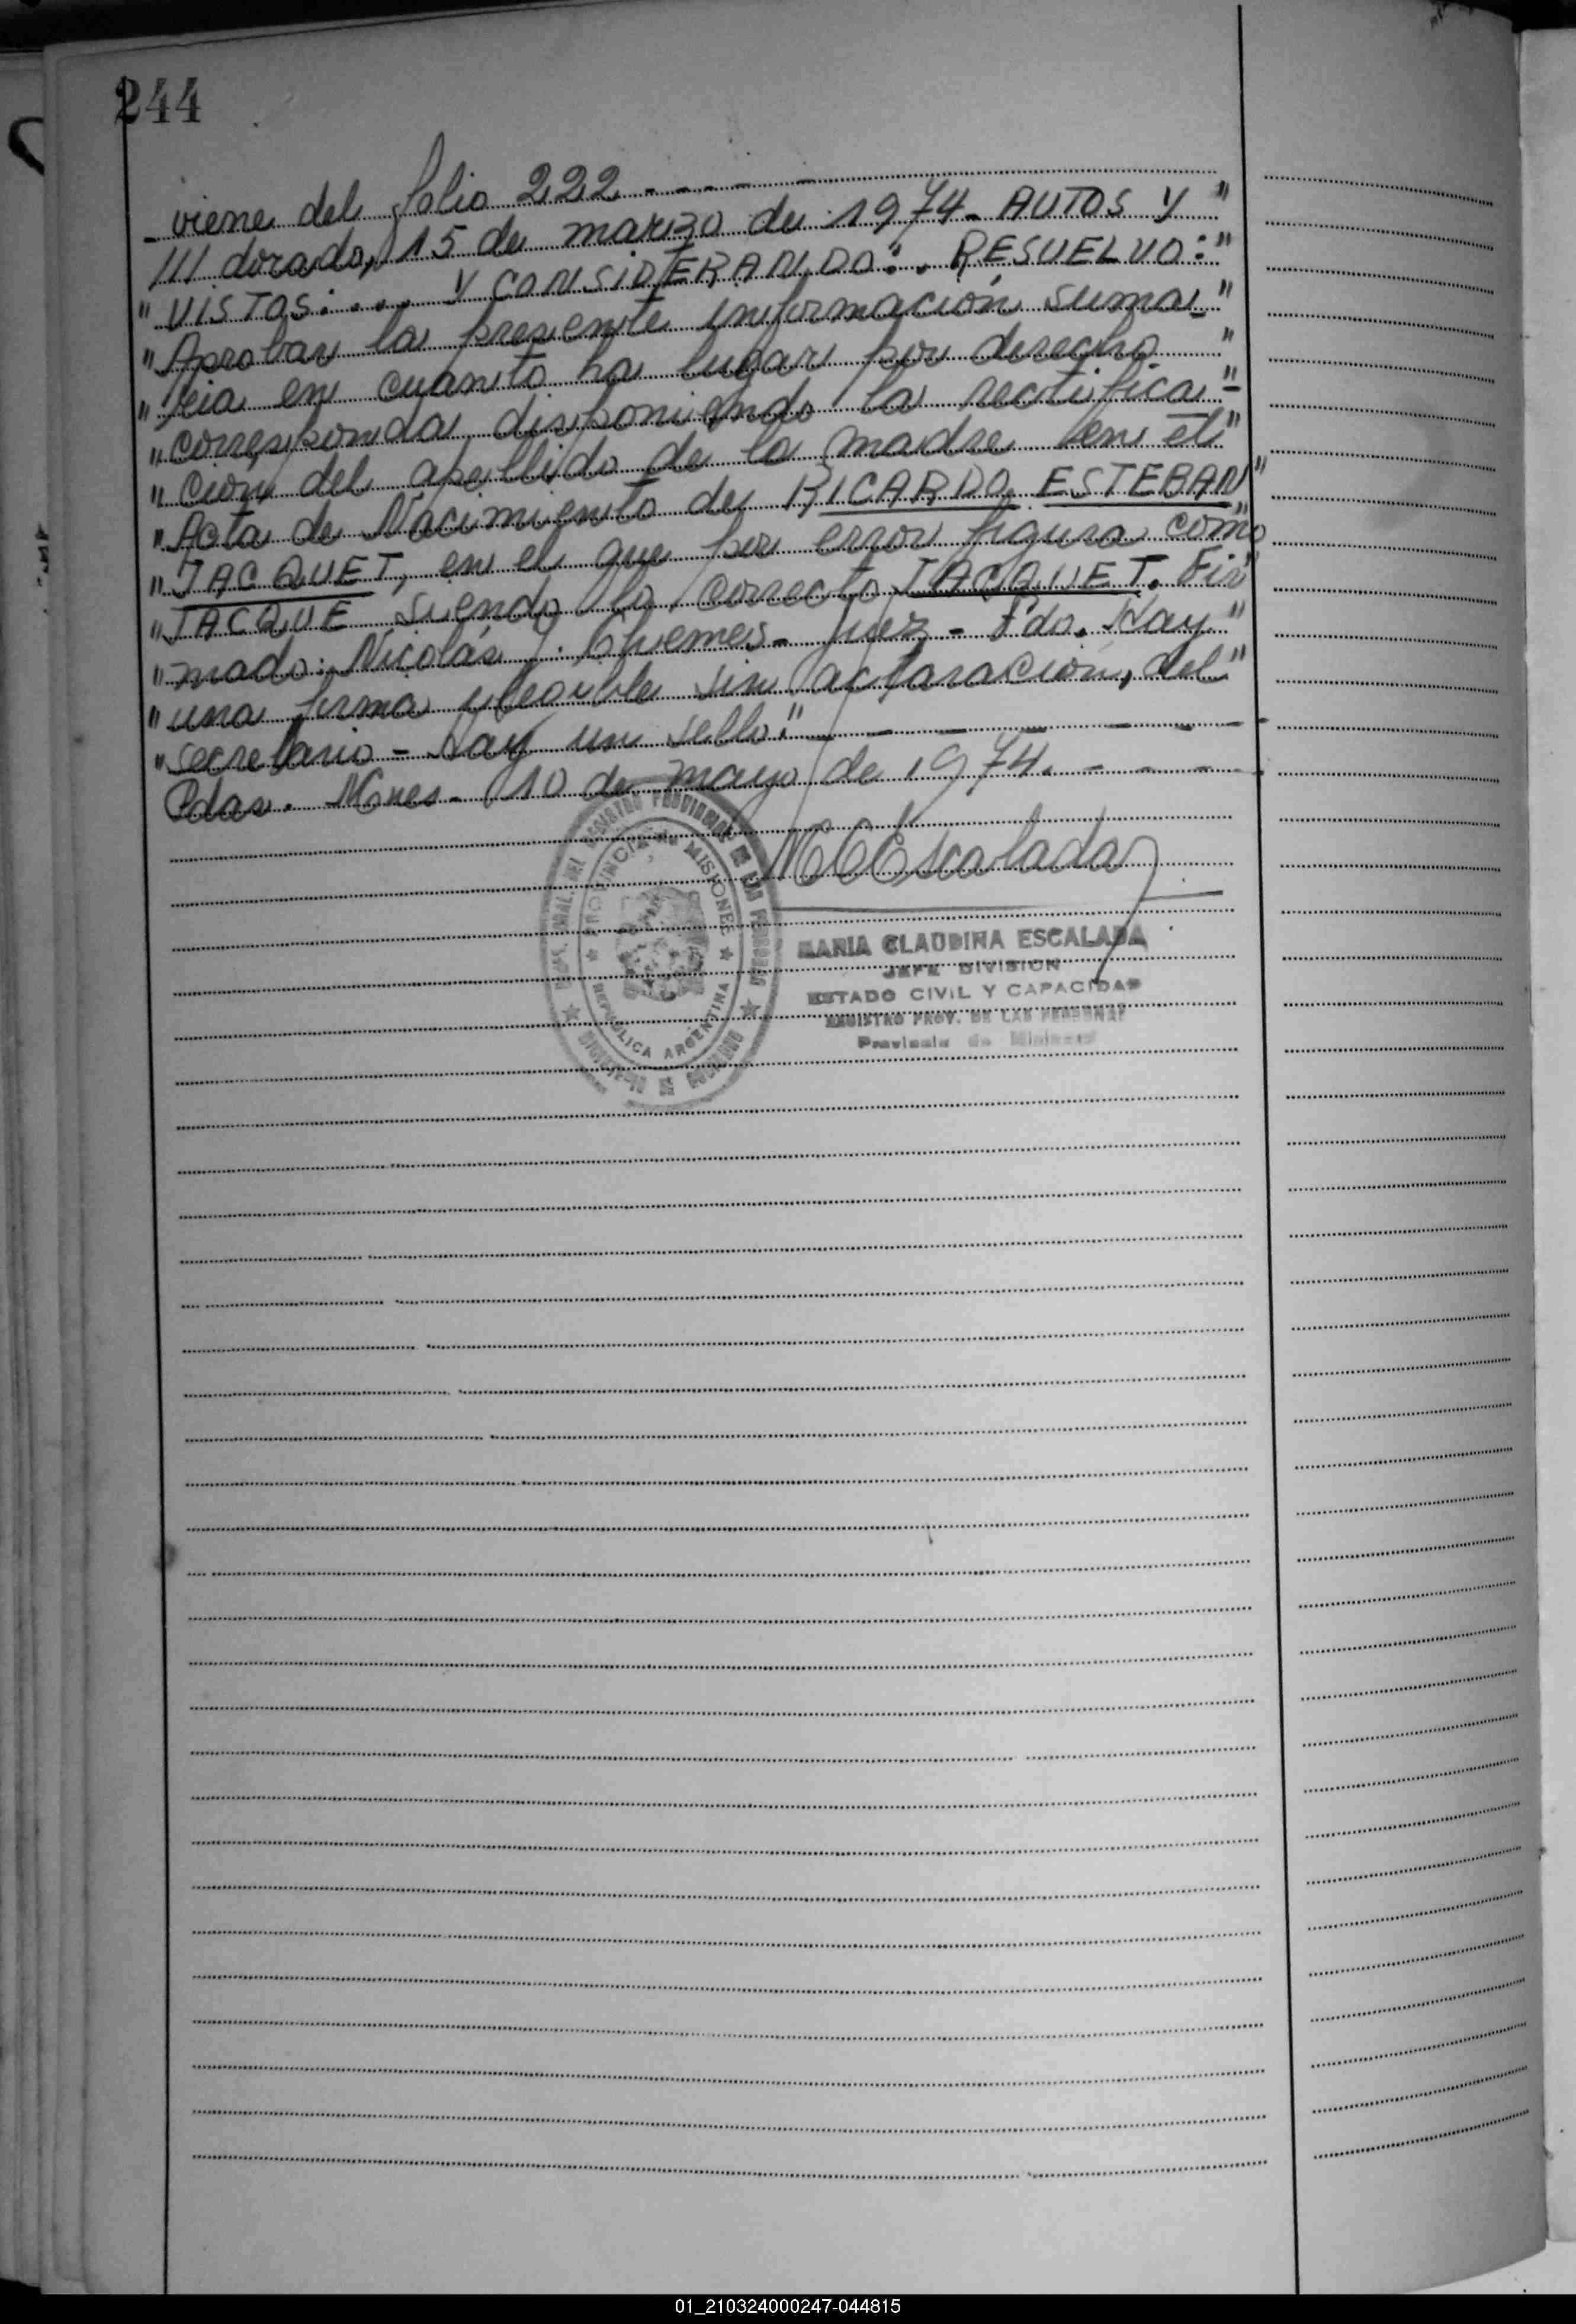 244
- viene del folio 222 - - - - -
/// dorado, 15 de marzo de 1974. AUTOS Y "
" VISTOS: . . . Y CONSIDERANDO: . RESUELVO: "
" Aprobar la presente información suma- "
" ria en cuanto ha lugar por derecho "
" corresponda, disponiendo la rectifica- "
" cion del apellido de la madre en el "
" Acta de Nacimiento de RICARDO ESTEBAN "
" JACQUET, en el que por error figura como
" JACQUE siendo lo correcto JACQUET. Fir "
" mado: Nicolás J. Chemes - Juez - Fdo. Hay "
" una firma ilegible sin aclaración, del "
" secretario - Hay un sello." - - - - - - -
Pdas. Mnes. 10 de mayo de 1974. - - - - -
MCEscalada
MARIA CLAUDINA ESCALADA
JEFE DIVISION
ESTADO CIVIL Y CAPACIDAD
REGISTRO PROV. DE LAS PERSONAS
Provincia de Misiones
REGISTRO PROVINCIAL DE LAS PERSONAS
PROVINCIA DE MISIONES
REPUBLICA ARGENTINA
01_210324000247-044815